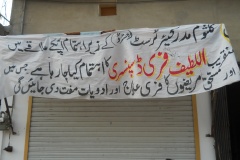 کلثوم مدر فینز ٹرسٹ کے زیر اہتمام آپکے علاقہ میں
عنقریب اللطیف فری ڈسپنسری کا اہتمام کیا جا رہا ہے جس میں
اور مستحق مریضوں کا فری علاج اور ادویات مفت دی جائیں گی